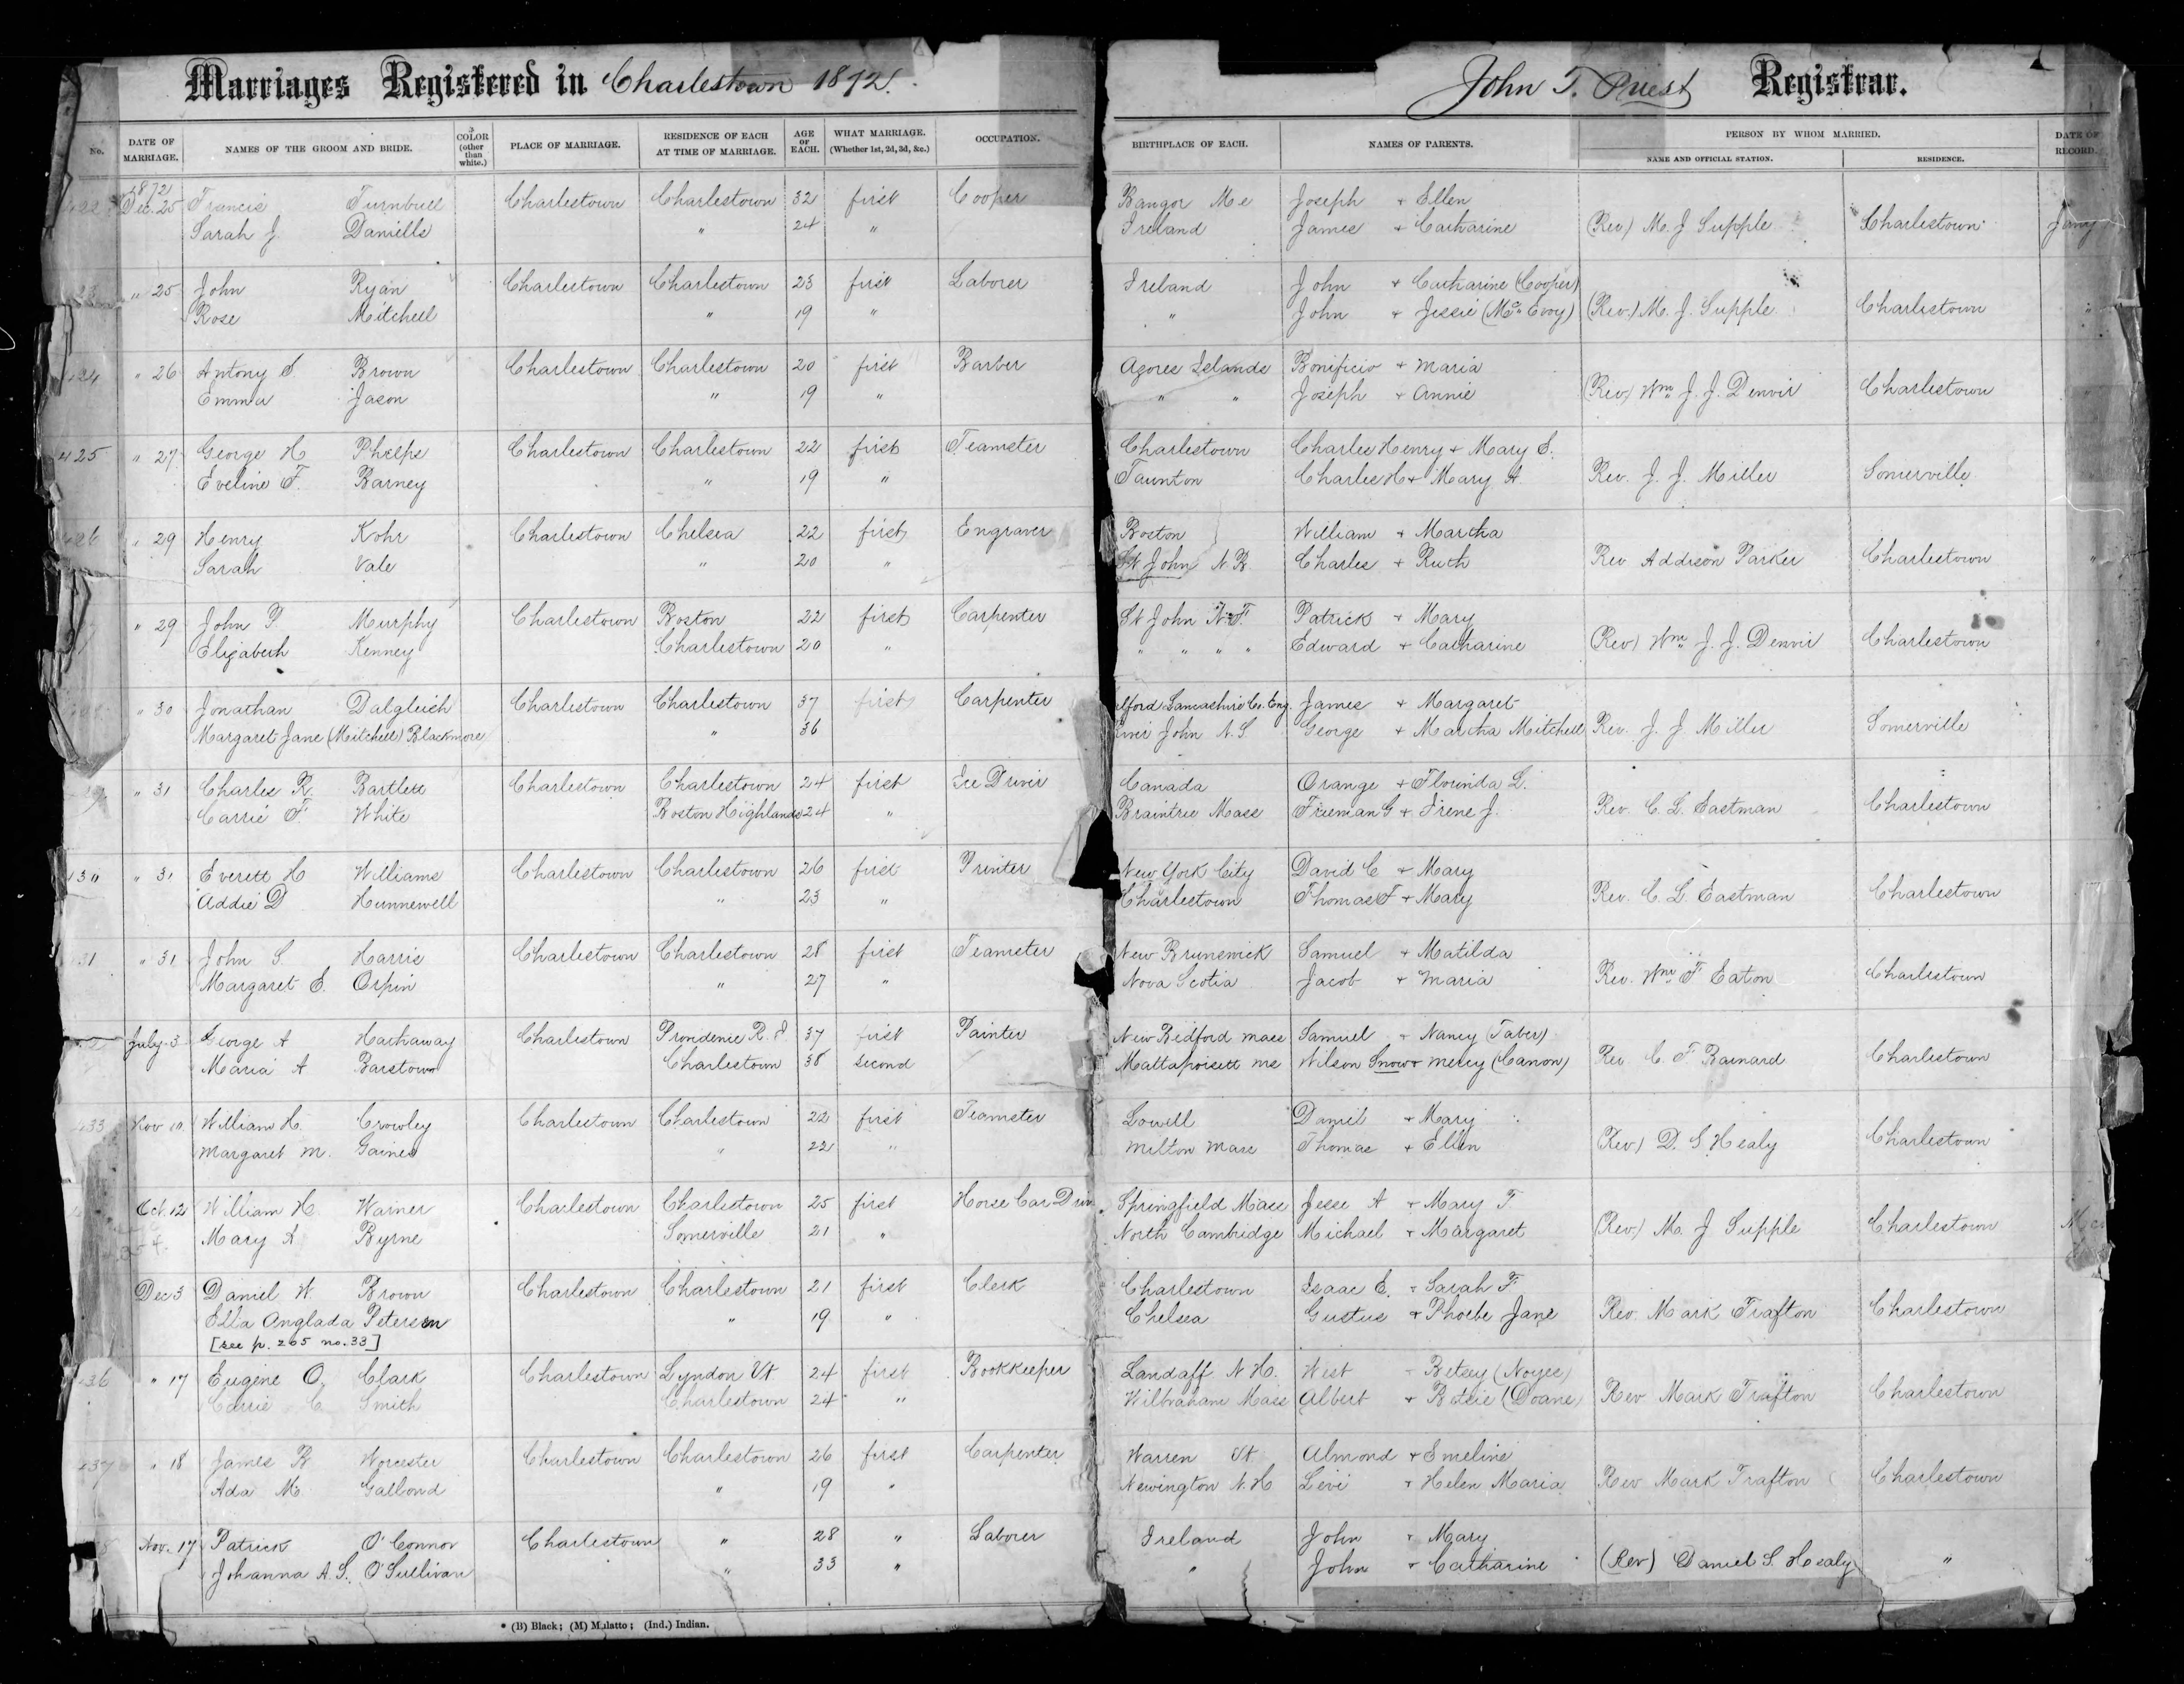 Marriages Registered in Charlestown 1872.
John T. Priest Registrar.
No. DATE OF MARRIAGE. NAMES OF THE GROOM AND BRIDE. COLOR (other than white.) PLACE OF MARRIAGE. RESIDENCE OF EACH AT TIME OF MARRIAGE. AGE OF EACH. WHAT MARRIAGE. (Whether 1st, 2d, 3d, &c.) OCCUPATION. BIRTHPLACE OF EACH. NAMES OF PARENTS. PERSON BY WHOM MARRIED. NAME AND OFFICIAL STATION. RESIDENCE. DATE OF RECORD.
1872
Dec. 25 Francis Turnbull Charlestown Charlestown 32 first Cooper Bangor Me Joseph + Ellen
Sarah J. Daniells " 24 " Ireland James + Catharine (Rev) M. J. Supple Charlestown Jany
" 25 John Ryan Charlestown Charlestown 23 first Laborer Ireland John + Catharine (Cooper)
Rose Mitchell " 19 " " John + Jessie (McEvoy) (Rev.) M. J. Supple Charlestown "
424 " 26 Antony S Brown Charlestown Charlestown 20 first Barber Azores Islands Bonificio + Maria
Emma Jason " 19 " " " Joseph + Annie (Rev) Wm J. J. Denvir Charlestown
425 " 27 George H Phelps Charlestown Charlestown 22 first Teamster Charlestown Charles Henry + Mary E.
Eveline F. Barney " 19 " Taunton Charles H + Mary A. Rev. J. J. Miller Somerville
426 " 29 Henry Kohr Charlestown Chelsea 22 first Engraver Boston William + Martha
Sarah Vale " 20 " St John N.B. Charles + Ruth Rev Addison Parker Charlestown "
" 29 John P. Murphy Charlestown Boston 22 first Carpenter St John N.F. Patrick + Mary
Elizabeth Kenney Charlestown 20 " " " " " Edward + Catharine (Rev) Wm J. J. Denvir Charlestown "
" 30 Jonathan Dalgleich Charlestown Charlestown 37 first Carpenter lford Lancashire Co. Eng. James + Margaret
Margaret Jane (Mitchell) Blackmore " 36 River John N.S George + Martha Mitchell Rev. J. J. Miller Somerville
" 31 Charles R. Bartlett Charlestown Charlestown 24 first Ice Driver Canada Orange + Florinda L.
Carrie F White Boston Highlands 24 " Braintree Mass Freeman G + Irene J. Rev. C. L. Eastman Charlestown
430 " 31 Everett H Williams Charlestown Charlestown 26 first Printer New York City David C + Mary
Addie D Hunnewell " 23 " Charlestown Thomas F + Mary Rev. C. L. Eastman Charlestown
31 " 31 John S. Harris Charlestown Charlestown 28 first Teamster New Brunswick Samuel + Matilda
Margaret E. Orpin " 27 " Nova Scotia Jacob + Maria Rev. Wm F Eaton Charlestown
July 3 George A Hathaway Charlestown Providence R. I. 37 first Painter New Bedford Mass Samuel + Nancy (Taber)
Maria A Barstow Charlestown 38 second Mattapoisett Ms Wilson Snow + Mercy (Canon) Rev C. F. Barnard Charlestown
433 Nov 10 William H. Crowley Charlestown Charlestown 22 first Teamster Lowell Daniel + Mary
Margaret M. Gaines " 22 " Milton Mass Thomas + Ellen (Rev) D. S Healy Charlestown
Oct. 12 William H. Warner Charlestown Charlestown 25 first Horse Car Driv Springfield Mass Jesse A + Mary T
Mary A Byrne Somerville 21 " North Cambridge Michael + Margaret (Rev.) M. J Supple Charlestown
Dec 3 Daniel W. Brown Charlestown Charlestown 21 first Clerk Charlestown Isaac E. + Sarah F
Ella Anglada Petersen " 19 " Chelsea Gustus + Phoebe Jane Rev. Mark Trafton Charlestown
[see p. 265 no. 33]
436 " 17 Eugene O. Clark Charlestown Lyndon Vt 24 first Bookkeeper Landaff N.H. West + Betsey (Noyes)
Carrie C Smith Charlestown 24 " Wilbraham Mass Albert + Betsie (Doane) Rev Mark Trafton Charlestown
437 " 18 James B Worcester Charlestown Charlestown 26 first Carpenter Warren Vt. Almond + Emeline
Ada M. Gallond " 19 " Newington N.H Levi + Helen Maria Rev Mark Trafton Charlestown
Nov. 17 Patrick O'Connor Charlestown " 28 " Laborer Ireland John + Mary
Johanna A. S. O'Sullivan " 33 " " John + Catharine (Rev) Daniel S. Healy "
* (B) Black; (M) Mulatto; (Ind.) Indian.